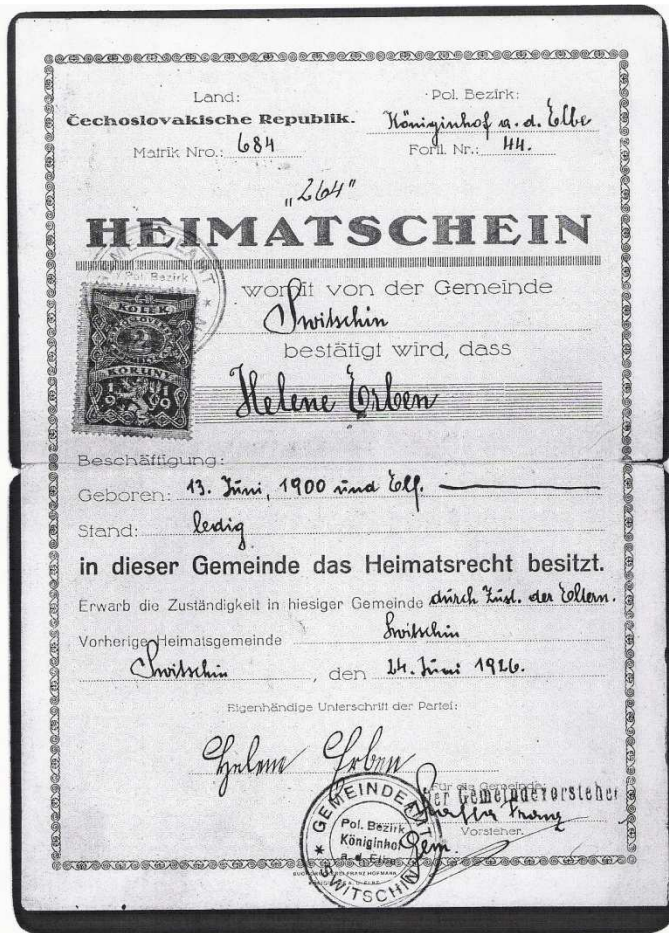 Land:
Čechoslovakische Republik.
Pol. Bezirk:
Königinhof a. d. Elbe
Matrik Nro.: 684
Foril. Nr.: 44.
"264"
HEIMATSCHEIN
Pol. Bezirk
womit von der Gemeinde
Switschin
KOLEK
2
KORUNY
1919
bestätigt wird, dass
Helene Erben
Beschäftigung:
Geboren: 13. Juni, 1900 und Elf.
Stand: ledig
in dieser Gemeinde das Heimatsrecht besitzt.
Erwarb die Zuständigkeit in hiesiger Gemeinde durch Zust. der Eltern.
Vorherige Heimatsgemeinde Switschin
Switschin, den 24. Juni 1926.
Eigenhändige Unterschrift der Partei:
Helene Erben
Für die Gemeinde:
Der Gemeindevorsteher
Franz
Vorsteher.
Gem.
GEMEINDEAMT
Pol. Bezirk
Königinhof
a. d. Elbe
SWITSCHIN
FRANZ HOFMANN